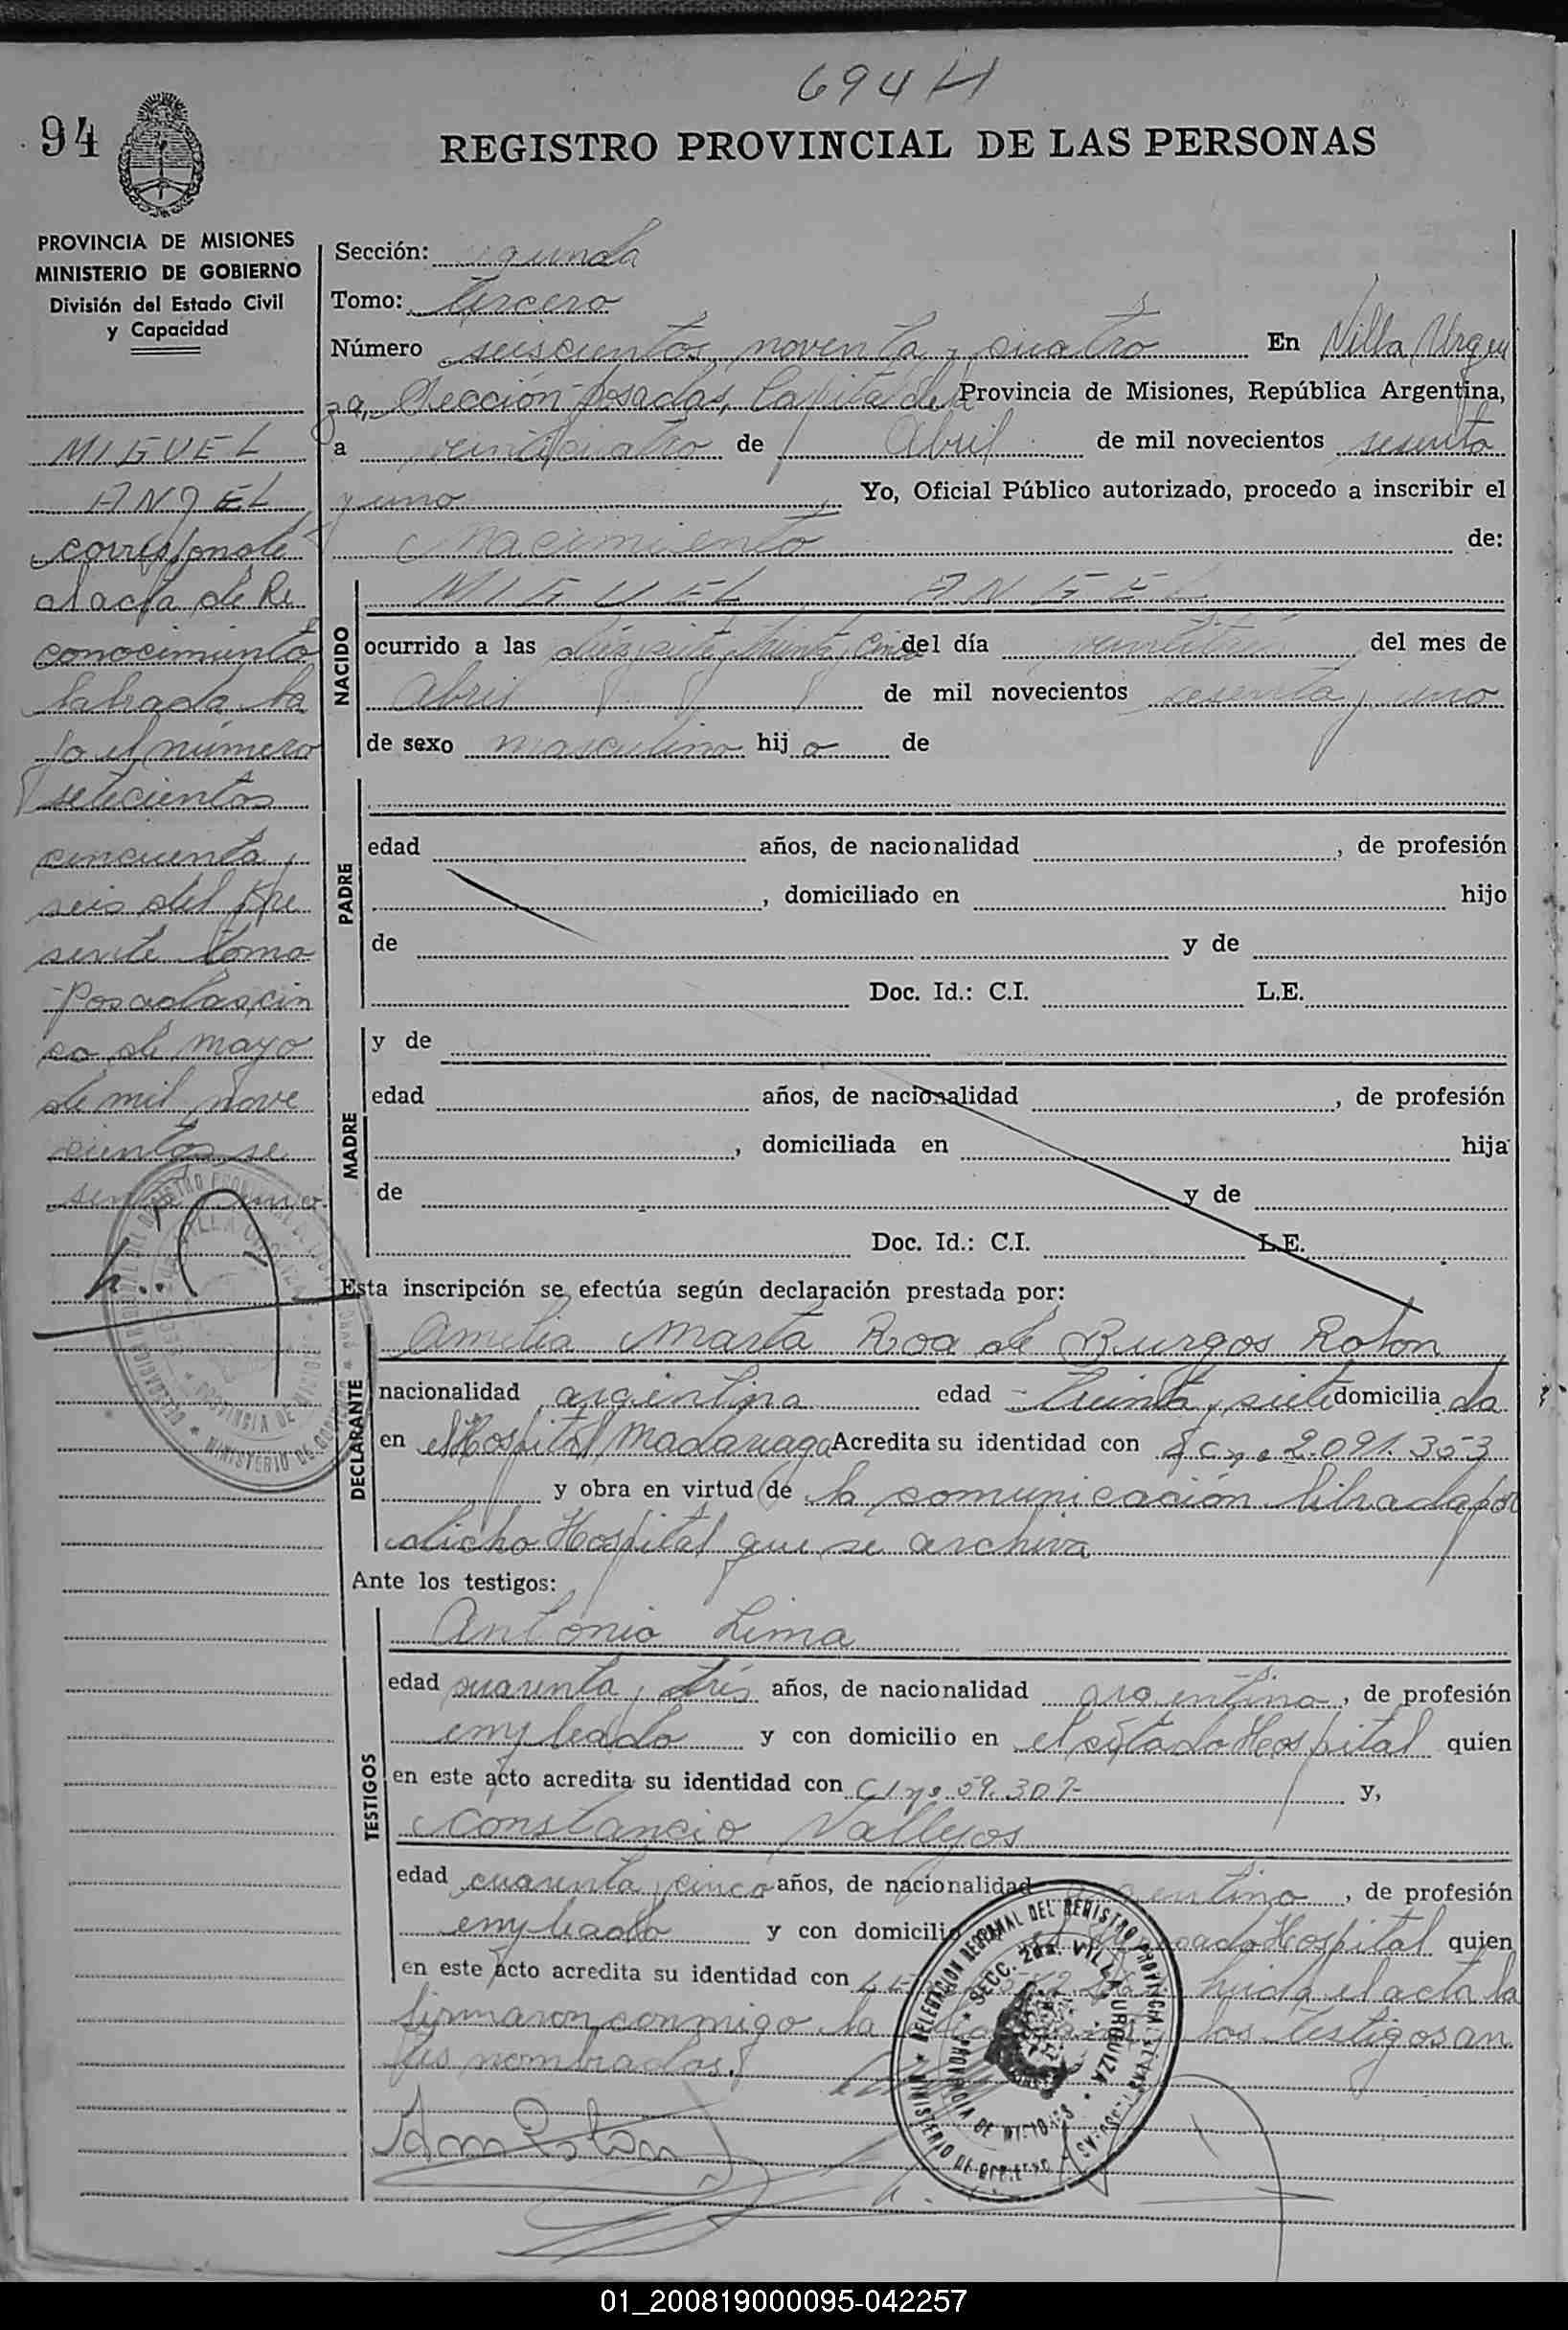 694 H
94
REGISTRO PROVINCIAL DE LAS PERSONAS
PROVINCIA DE MISIONES
MINISTERIO DE GOBIERNO
División del Estado Civil
y Capacidad
MIGUEL
ANGEL
corresponde
al acta de Re
conocimiento
labrada ba
jo el número
setecientos
cincuenta y
seis del pre
sente tomo
Posadas, cin
co de mayo
de mil nove
cientos se
senta y uno.
Sección: segunda
Tomo: tercero
Número seiscientos noventa y cuatro En Villa Urqui
za, Sección Posadas, Capital de la Provincia de Misiones, República Argentina,
a veinticuatro de Abril de mil novecientos sesenta
y uno Yo, Oficial Público autorizado, procedo a inscribir el
nacimiento de:
NACIDO
MIGUEL ANGEL
ocurrido a las diez y siete y treinta y cinco del día veintitrés del mes de
Abril de mil novecientos sesenta y uno
de sexo masculino hijo de
PADRE
edad años, de nacionalidad , de profesión
, domiciliado en hijo
de y de
Doc. Id.: C.I. L.E.
MADRE
y de
edad años, de nacionalidad , de profesión
, domiciliada en hija
de y de
Doc. Id.: C.I. L.E.
Esta inscripción se efectúa según declaración prestada por:
DECLARANTE
Amelia Marta Roa de Burgos Rolon
nacionalidad argentina edad treinta y siete domiciliada
en el Hospital Madariaga Acredita su identidad con 2.091.353
y obra en virtud de la comunicación librada por
dicho Hospital que se archiva
Ante los testigos:
TESTIGOS
Antonio Lima
edad cuarenta y tres años, de nacionalidad argentino, de profesión
empleado y con domicilio en el citado Hospital quien
en este acto acredita su identidad con CI nº 59.307- y,
Constancio Vallejos
edad cuarenta y cinco años, de nacionalidad argentino, de profesión
empleado y con domicilio Hospital quien
en este acto acredita su identidad con leída el acta la
firmaron conmigo la los testigos an
tes nombrados.
DELEGACION REGIONAL DEL REGISTRO PROVINCIAL DE LAS PERSONAS
SECC. 2da. VILLA URQUIZA
PROVINCIA DE MISIONES
MINISTERIO DE GOBIERNO
01_200819000095-042257